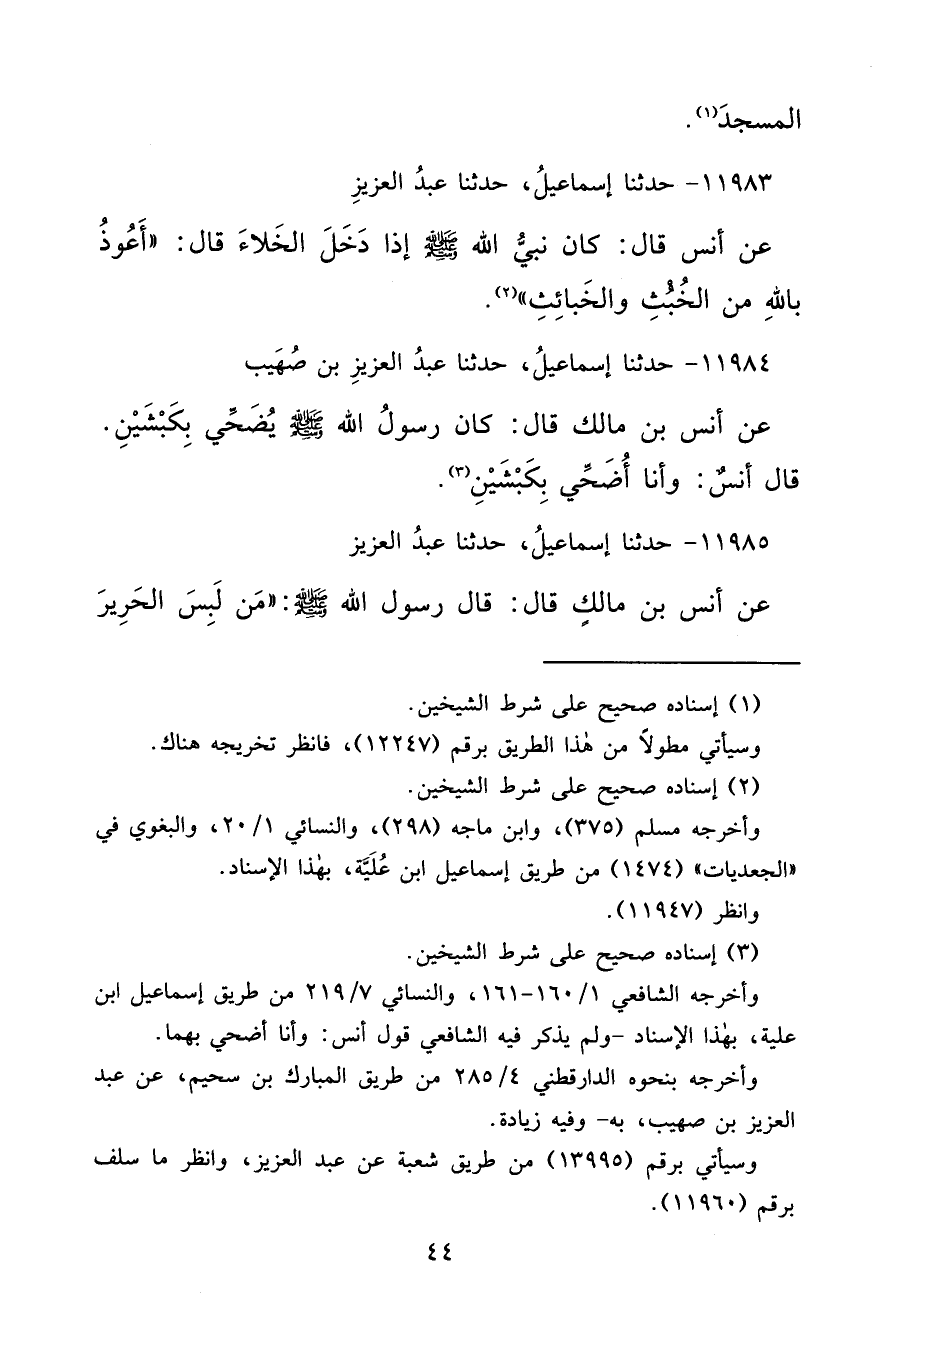 المسجدَ(١).
١١٩٨٣- حدثنا إسماعيلُ، حدثنا عبدُ العزيزِ
عن أنس قال: كان نبيُّ الله ﷺ إذا دَخَلَ الخَلاءَ قال: «أَعُوذُ
باللهِ من الخُبُثِ والخَبائِثِ»(٢).
١١٩٨٤- حدثنا إسماعيلُ، حدثنا عبدُ العزيزِ بن صُهَيب
عن أنس بن مالك قال: كان رسولُ الله ﷺ يُضَحِّي بِكَبْشَيْنِ.
قال أنسٌ: وأنا أُضَحِّي بِكَبْشَيْنِ(٣).
١١٩٨٥- حدثنا إسماعيلُ، حدثنا عبدُ العزيز
عن أنس بن مالكٍ قال: قال رسول الله ﷺ: «مَن لَبِسَ الحَرِيرَ
(١) إسناده صحيح على شرط الشيخين.
وسيأتي مطولاً من هٰذا الطريق برقم (١٢٢٤٧)، فانظر تخريجه هناك.
(٢) إسناده صحيح على شرط الشيخين.
وأخرجه مسلم (٣٧٥)، وابن ماجه (٢٩٨)، والنسائي ٢٠/١، والبغوي في
«الجعديات» (١٤٧٤) من طريق إسماعيل ابن عُلَيَّة، بهٰذا الإسناد.
وانظر (١١٩٤٧).
(٣) إسناده صحيح على شرط الشيخين.
وأخرجه الشافعي ١٦٠/١-١٦١، والنسائي ٢١٩/٧ من طريق إسماعيل ابن
علية، بهٰذا الإسناد -ولم يذكر فيه الشافعي قول أنس: وأنا أضحي بهما.
وأخرجه بنحوه الدارقطني ٢٨٥/٤ من طريق المبارك بن سحيم، عن عبد
العزيز بن صهيب، به- وفيه زيادة.
وسيأتي برقم (١٣٩٩٥) من طريق شعبة عن عبد العزيز، وانظر ما سلف
برقم (١١٩٦٠).
٤٤